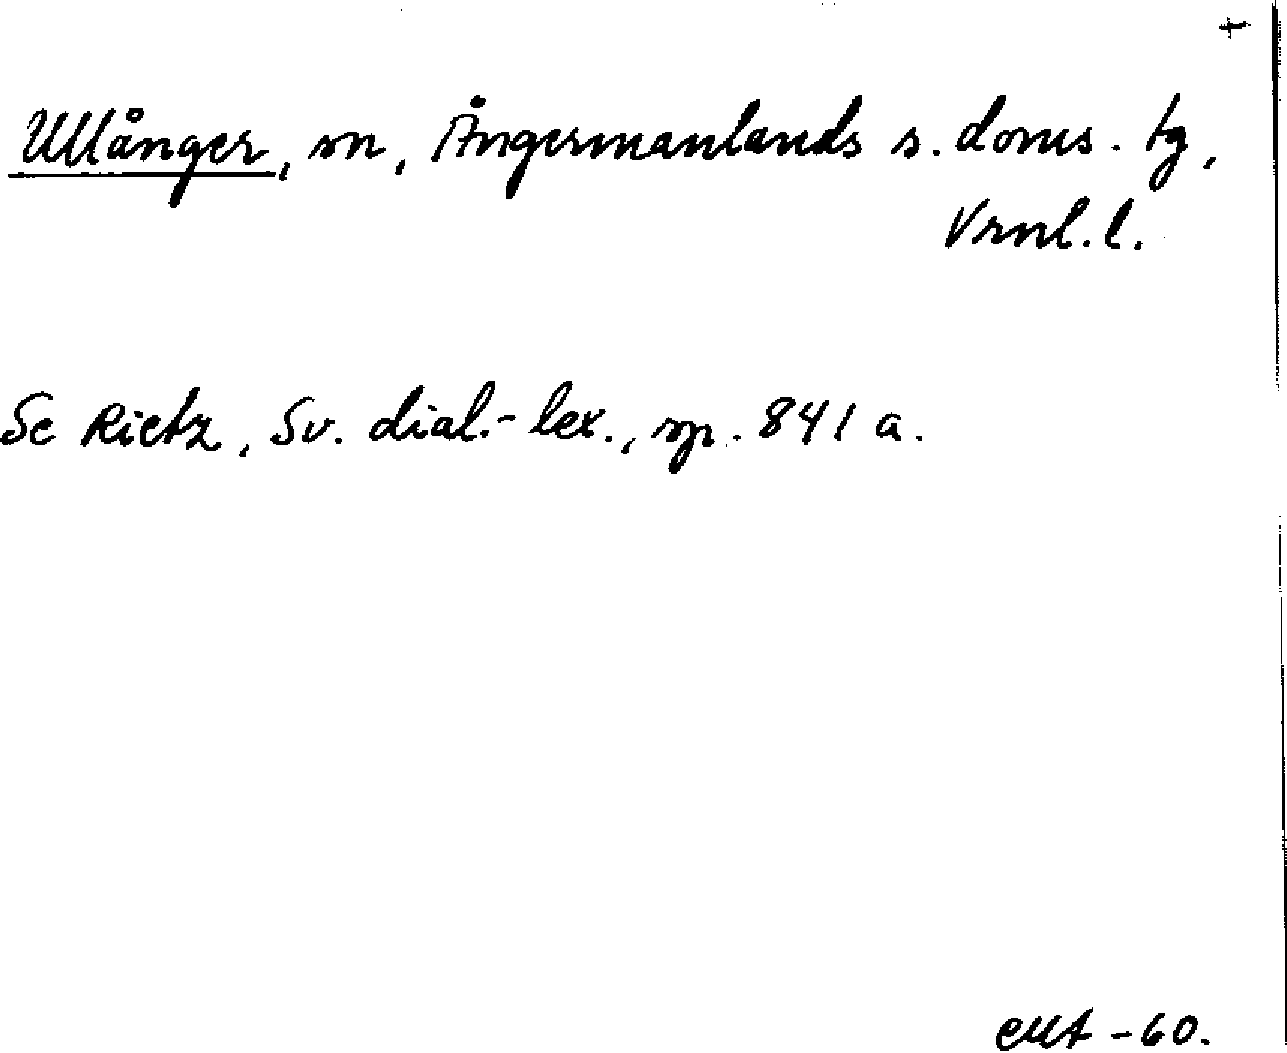 +
Ullånger, sn, Ångermanlands s. doms. tg,
Vrnl. l.
Se Rietz, Sv. dial.-lex., sp. 841 a.
-60.